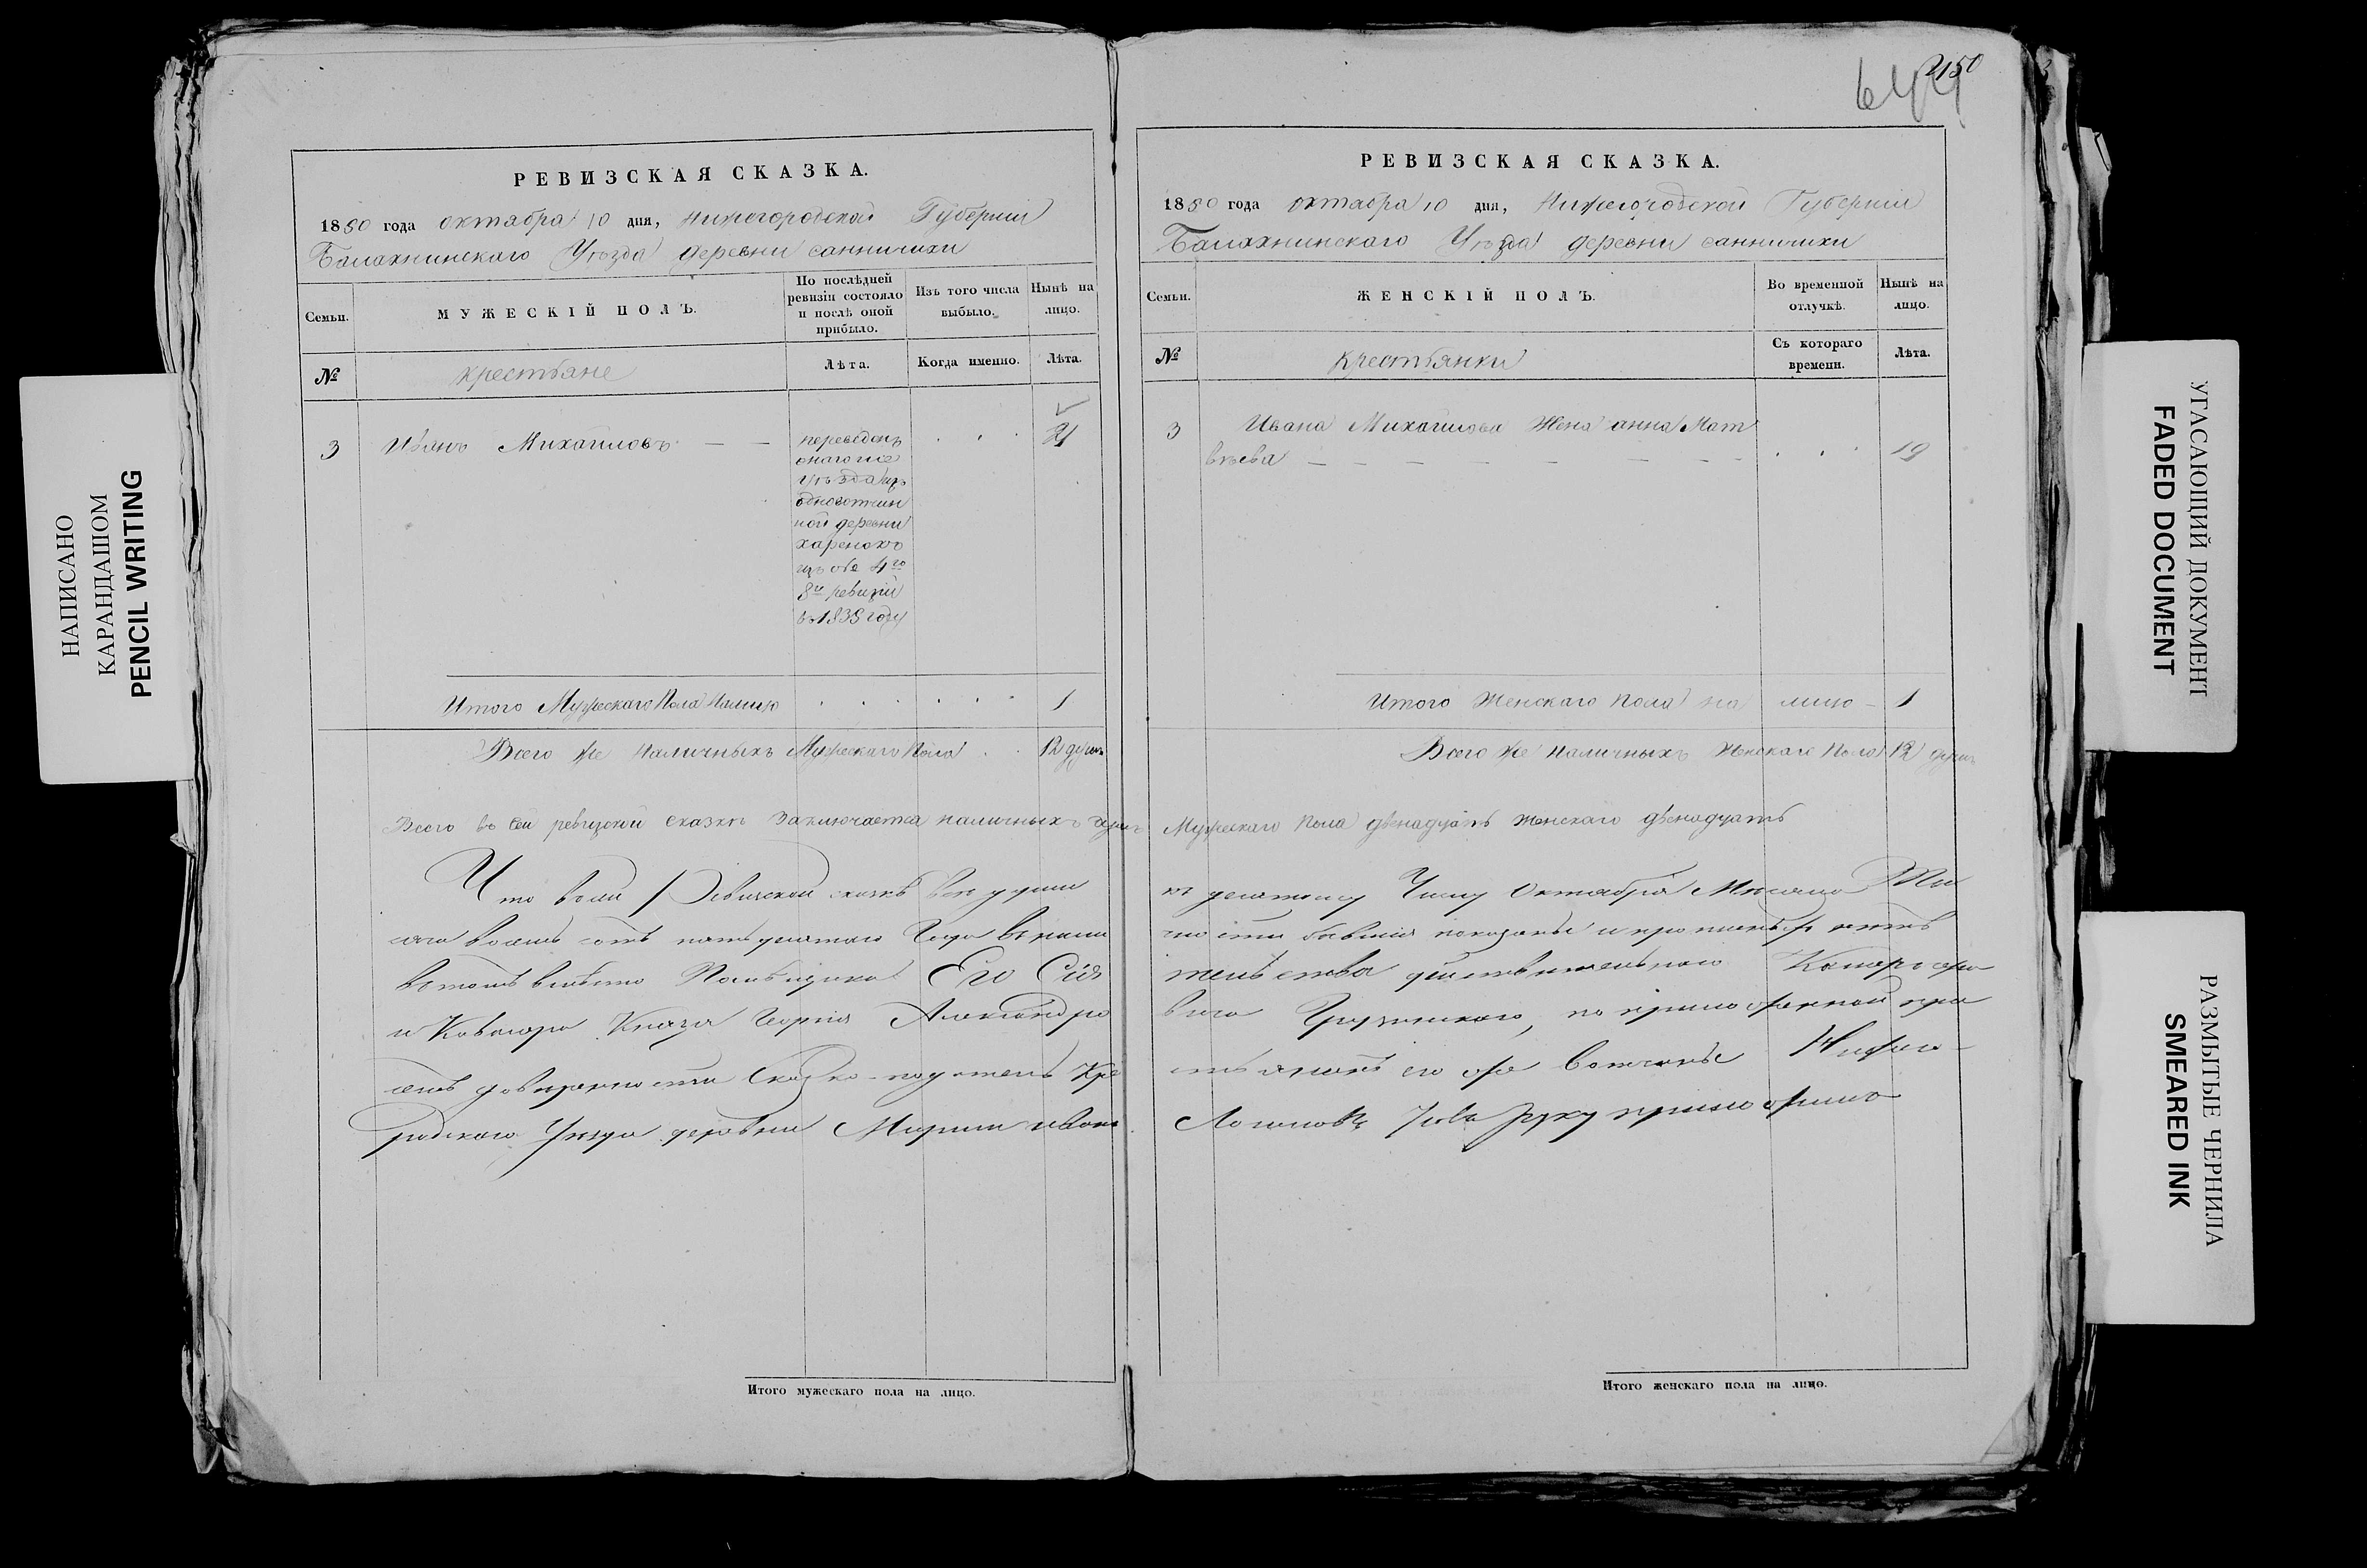 НАПИСАНО
КАРАНДАШОМ
PENCIL WRITING
РЕВИЗСКАЯ СКАЗКА.
1850 года октября 10 дня, Нижегородской Губернии
Балахнинскаго Уѣзда деревни санничихи
Семьи.
МУЖЕСКІЙ ПОЛЪ.
По послѣдней
ревизіи состояло
и послѣ оной
прибыло.
Изъ того числа
выбыло.
Нынѣ на
лицо.
№
крестьяне
Лѣта.
Когда именно.
Лѣта.
3
Иванъ Михайловъ — —
переведенъ
уѣзда изъ
одновотчин
ной деревни
8й ревизіи
въ 1838 году
21
Итого Мужескаго Пола Налицо
1
Всего же наличныхъ Мужескаго Пола
12 душъ
Всего въ сей ревизской сказкѣ заключается наличныхъ душъ
Что в сей Ревизской сказкѣ всѣ души
сяча восемь сотъ пятьдесятаго Года
Помѣщика Его Сія
и Кавалера Князя Георгія Александро
семъ довѣренности Сказко-податель Кре
родскаго Уѣзда деревни
150
РЕВИЗСКАЯ СКАЗКА.
1850 года октября 10 дня, Нижегородской Губернии
Балахнинскаго Уѣзда деревни санничихи
Семьи.
ЖЕНСКІЙ ПОЛЪ.
Во временной
отлучкѣ.
Нынѣ на
лицо.
№
крестьянки
Съ котораго
времени.
Лѣта.
3
Ивана Михайлова Жена анна Мат
вѣева — — — — — — —
19
Итого Женскаго пола на лицо —
1
Всего же наличныхъ Женскаго Пола
12 душъ
Мужескаго пола двенадцать женскаго двенадцать
къ десятому Числу Октября Месяца Ты
тельства действительнаго Камергера
вича Грузинскаго, по приложенной при
его же вотчины Нижего-
руку приложилъ
Итого мужескаго пола на лицо.
Итого женскаго пола на лицо.
УГАСАЮЩИЙ ДОКУМЕНТ
FADED DOCUMENT
РАЗМЫТЫЕ ЧЕРНИЛА
SMEARED INK